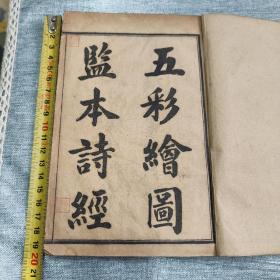 五彩繪圖
監本詩經
2
3
4
5
6
7
8
9
10
11
12
13
14
15
16
17
18
19
20
21